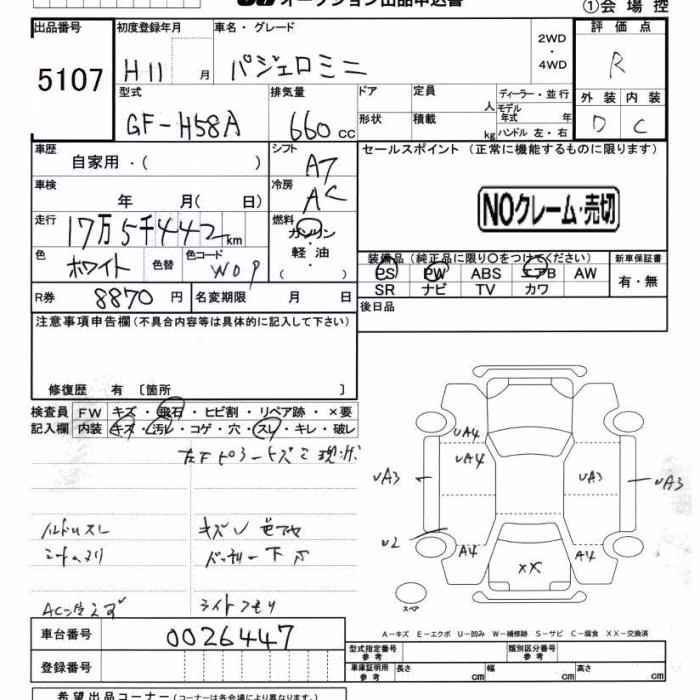 オークション出品申込書
①会場控
出品番号 初度登録年月 車名・グレード 2WD・4WD 評価点
5107 H11 月 パジェロミニ R
型式 排気量 ドア 定員 人 ディーラー・並行 外装 内装
GF-H58A 660 cc 形状 積載 kg モデル年式 年式 ハンドル 左・右 D C
車歴 自家用・( ) シフト AT セールスポイント (正常に機能するものに限ります)
車検 年 月( 日) 冷房 AC
NOクレーム・売切
走行 17万5千442km 燃料 ガソリン・軽油・( )
色 ホワイト 色替 色コード W09
装備品(純正品に限り○をつけてください) 新車保証書
PS PW ABS エアB AW 有・無
SR ナビ TV カワ
R券 8870 円 名変期限 月 日 後日品
注意事項申告欄(不具合内容等は具体的に記入して下さい)
修復歴 有 〔箇所 〕
検査員 FW キズ・飛石・ヒビ割・リペア跡・×要
記入欄 内装 キズ・汚レ・コゲ・穴・スレ・キレ・破レ
UA4
UA4
UA3 UA3 UA3
U2
A4 A4
XX
ハンドルスレ
バッテリー下
ライトクモリ
スペア
A-キズ E-エクボ U-凹み W-補修跡 S-サビ C-腐食 XX-交換済
車台番号 0026447
型式指定番号 参考 類別区分番号 参考
登録番号 車庫証明用 参考 長さ cm 幅 cm 高さ cm
希望出品コーナー(コーナーは各会場により異なります。)